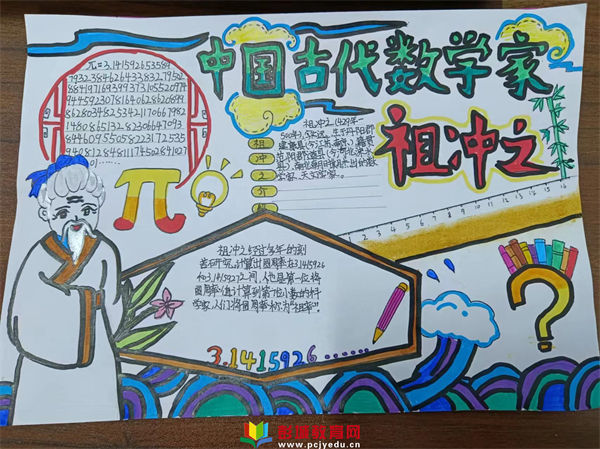 中国古代数学家
祖冲之
π=3.14159265358
9793238462643383279502
884197169399375105520974
944592307816406286208998
862803482534211706
7982
148086513282306647093
844609550582231725
35
940812848111745028
祖冲之(429年—
500年),字文远,生于丹阳郡
祖
冲
之
介
π
2 3 4 5 6 7 8 9 10 11 12 13 14 15 16
祖冲之经过多年的刻
苦研究,计算出圆周率在3.1415926
和3.1415927之间,他也是第一位将
圆周率值计算到第7位小数的科
学家,人们将圆周率称为“祖率”。
3.1415926......
?
彭城教育网
www.pcjyedu.cn